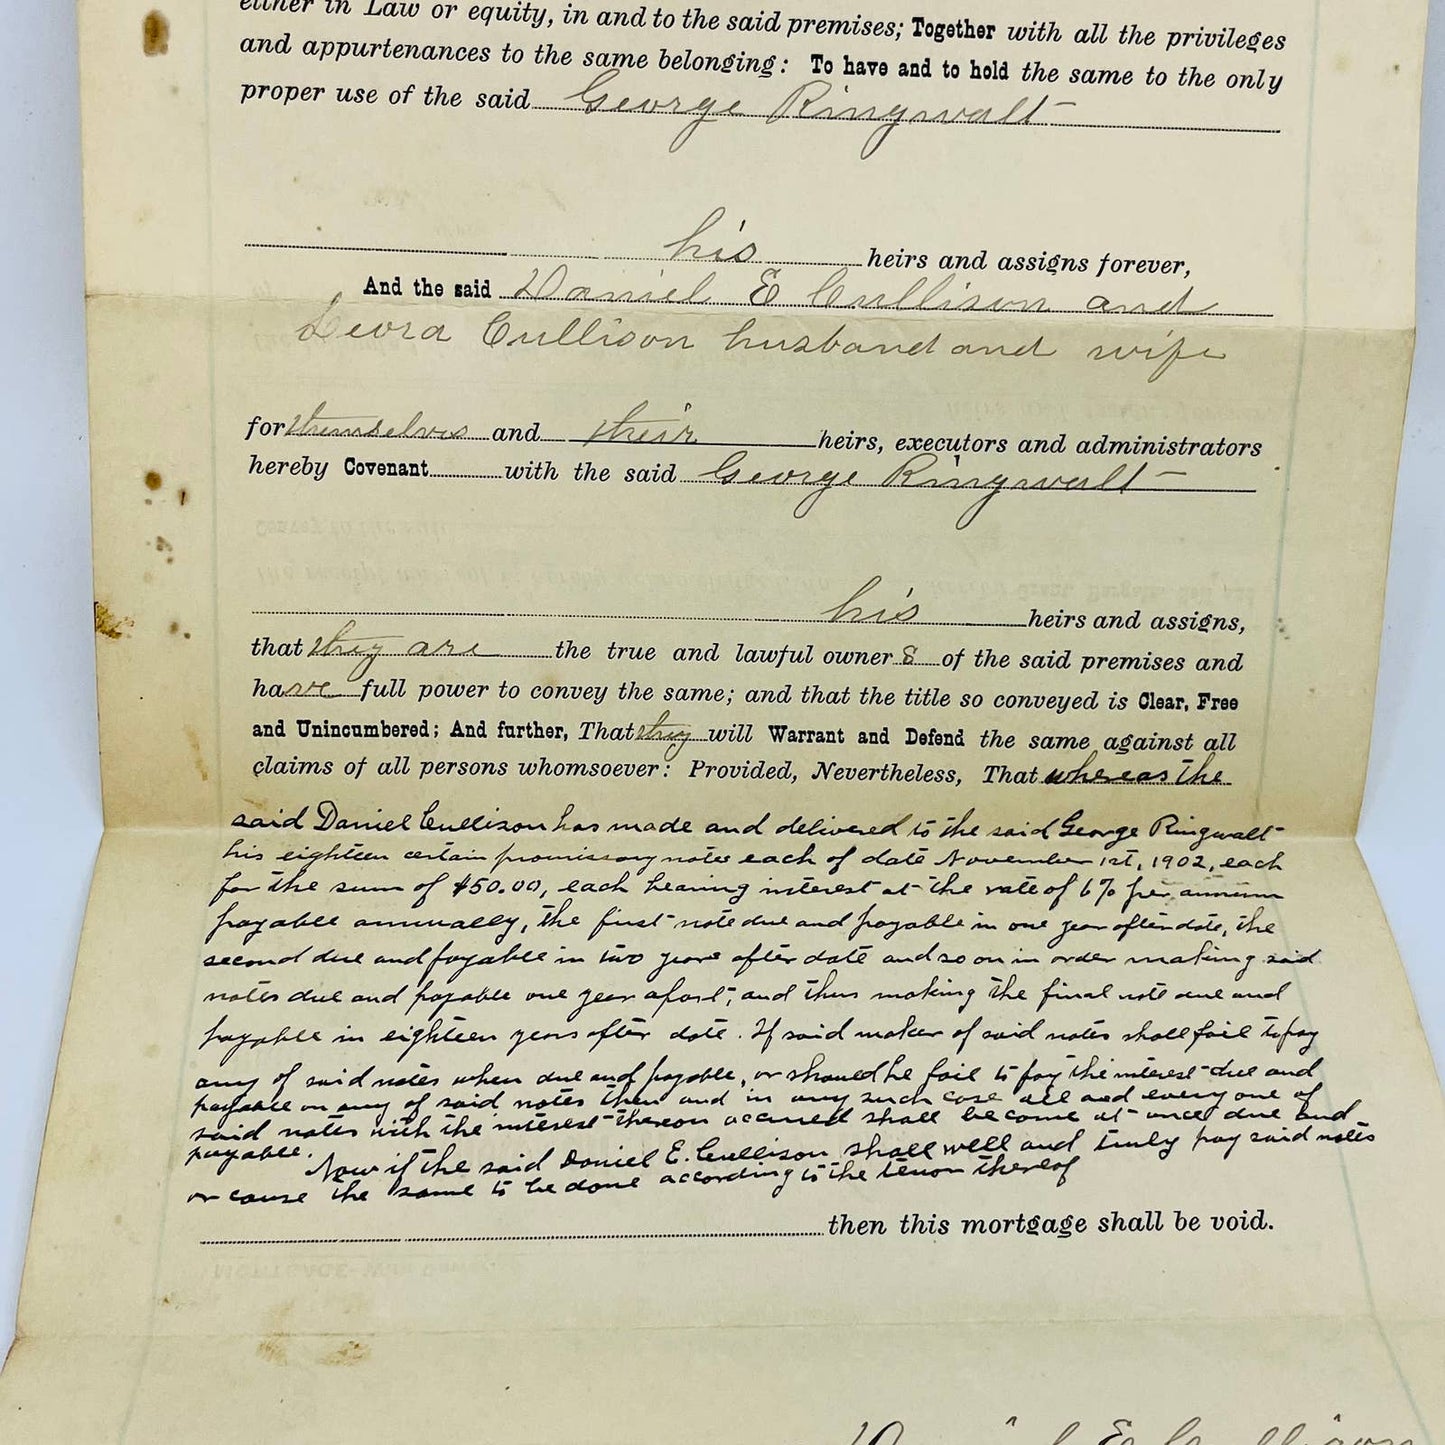 either in Law or equity, in and to the said premises; Together with all the privileges
and appurtenances to the same belonging: To have and to hold the same to the only
proper use of the said George Ringwalt
his heirs and assigns forever,
And the said Daniel E Cullison and
Leora Cullison husband and wife
for themselves and their heirs, executors and administrators
hereby Covenant with the said George Ringwalt
his heirs and assigns,
that they are the true and lawful owner s of the said premises and
have full power to convey the same; and that the title so conveyed is Clear, Free
and Unincumbered; And further, That they will Warrant and Defend the same against all
claims of all persons whomsoever: Provided, Nevertheless, That whereas the
said Daniel Cullison has made and delivered to the said George Ringwalt
his eighteen certain promissory notes each of date November 1st, 1902, each
for the sum of $50.00, each bearing interest at the rate of 6% per annum
payable annually, the first note due and payable in one year after date, the
second due and payable in two years after date and so on in order making said
notes due and payable one year apart, and thus making the final note due and
payable in eighteen years after date. If said maker of said notes shall fail to pay
any of said notes when due and payable, or should he fail to pay the interest due and
payable on any of said notes then and in any such case all and every one of
said notes with the interest thereon accrued shall become at once due and
payable. Now if the said Daniel E. Cullison shall well and truly pay said notes
or cause the same to be done according to the tenor thereof
then this mortgage shall be void.
Daniel E Cullison